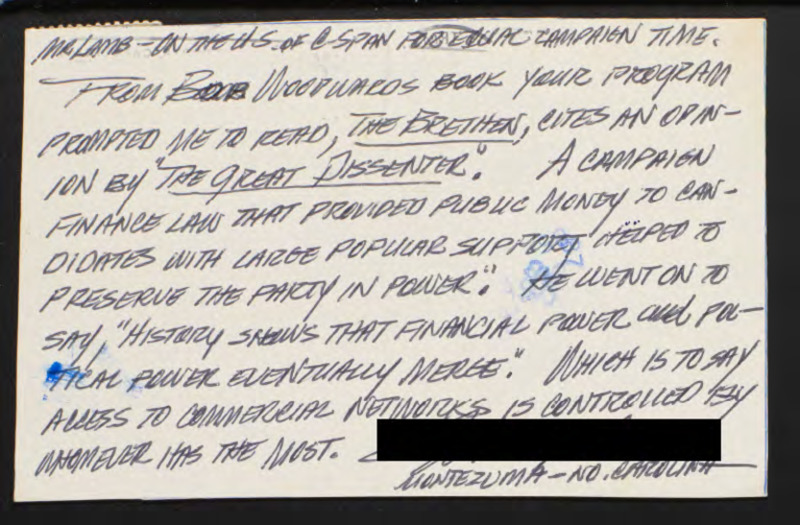 MR. LAMB - ON THE US. OF C-SPAN FOR EQUAL CAMPAIGN TIME.
FROM BOB WOODWARDS BOOK YOUR PROGRAM
PROMPTED ME TO READ, THE BRETHEN, CITES AN OPIN-
ION BY "THE GREAT DISSENTER". A CAMPAIGN
FINANCE LAW THAT PROVIDED PUBLIC MONEY TO CAN-
DIDATES WITH LARGE POPULAR SUPPORT "HELPED TO
PRESERVE THE PARTY IN POWER". HE WENT ON TO
SAY, "HISTORY SHOWS THAT FINANCIAL POWER and POL-
TICAL POWER EVENTUALLY MERGE". WHICH IS TO SAY
ACCESS TO COMMERCIAL NETWORKS IS CONTROLLED BY
WHOMEVER HAS THE MOST.
MONTEZUMA - NO. CAROLINA